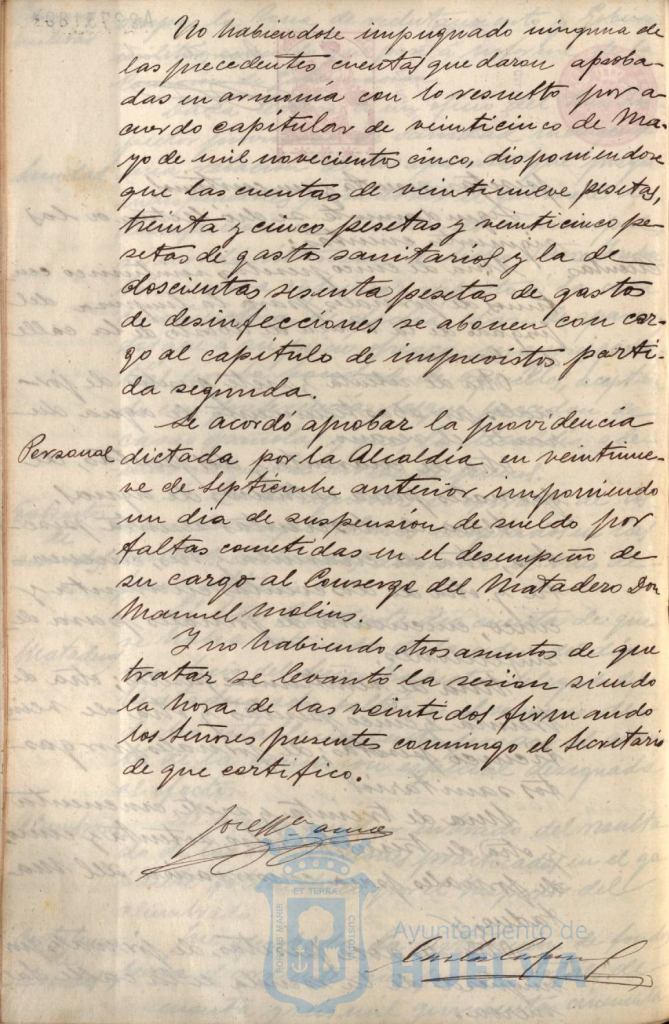 No habiendose impugnado ninguna de
las precedentes cuentas quedaron aproba-
das en armonía con lo resuelto por a-
cuerdo capitular de veinticinco de Ma-
yo de mil novecientos cinco, disponiendose
que las cuentas de veintinueve pesetas,
treinta y cinco pesetas y veinticinco pe-
setas de gastos sanitarios y la de
doscientas sesenta pesetas de gastos
de desinfecciones se abonen con car-
go al capítulo de imprevistos parti-
da segunda.
Se acordó aprobar la providencia
Personal dictada por la Alcaldía en veintinue-
ve de Septiembre anterior imponiendo
un dia de suspensión de sueldo por
faltas cometidas en el desempeño de
su cargo al Conserge del Matadero Don
Manuel Molins.
Y no habiendo otros asuntos de que
tratar se levantó la sesion siendo
la hora de las veintidos firmando
los Señores presentes conmigo el Secretario
de que certifico.
ET TERRÆ
PORTUS MARIS
CUSTODIA
Ayuntamiento de
HUELVA